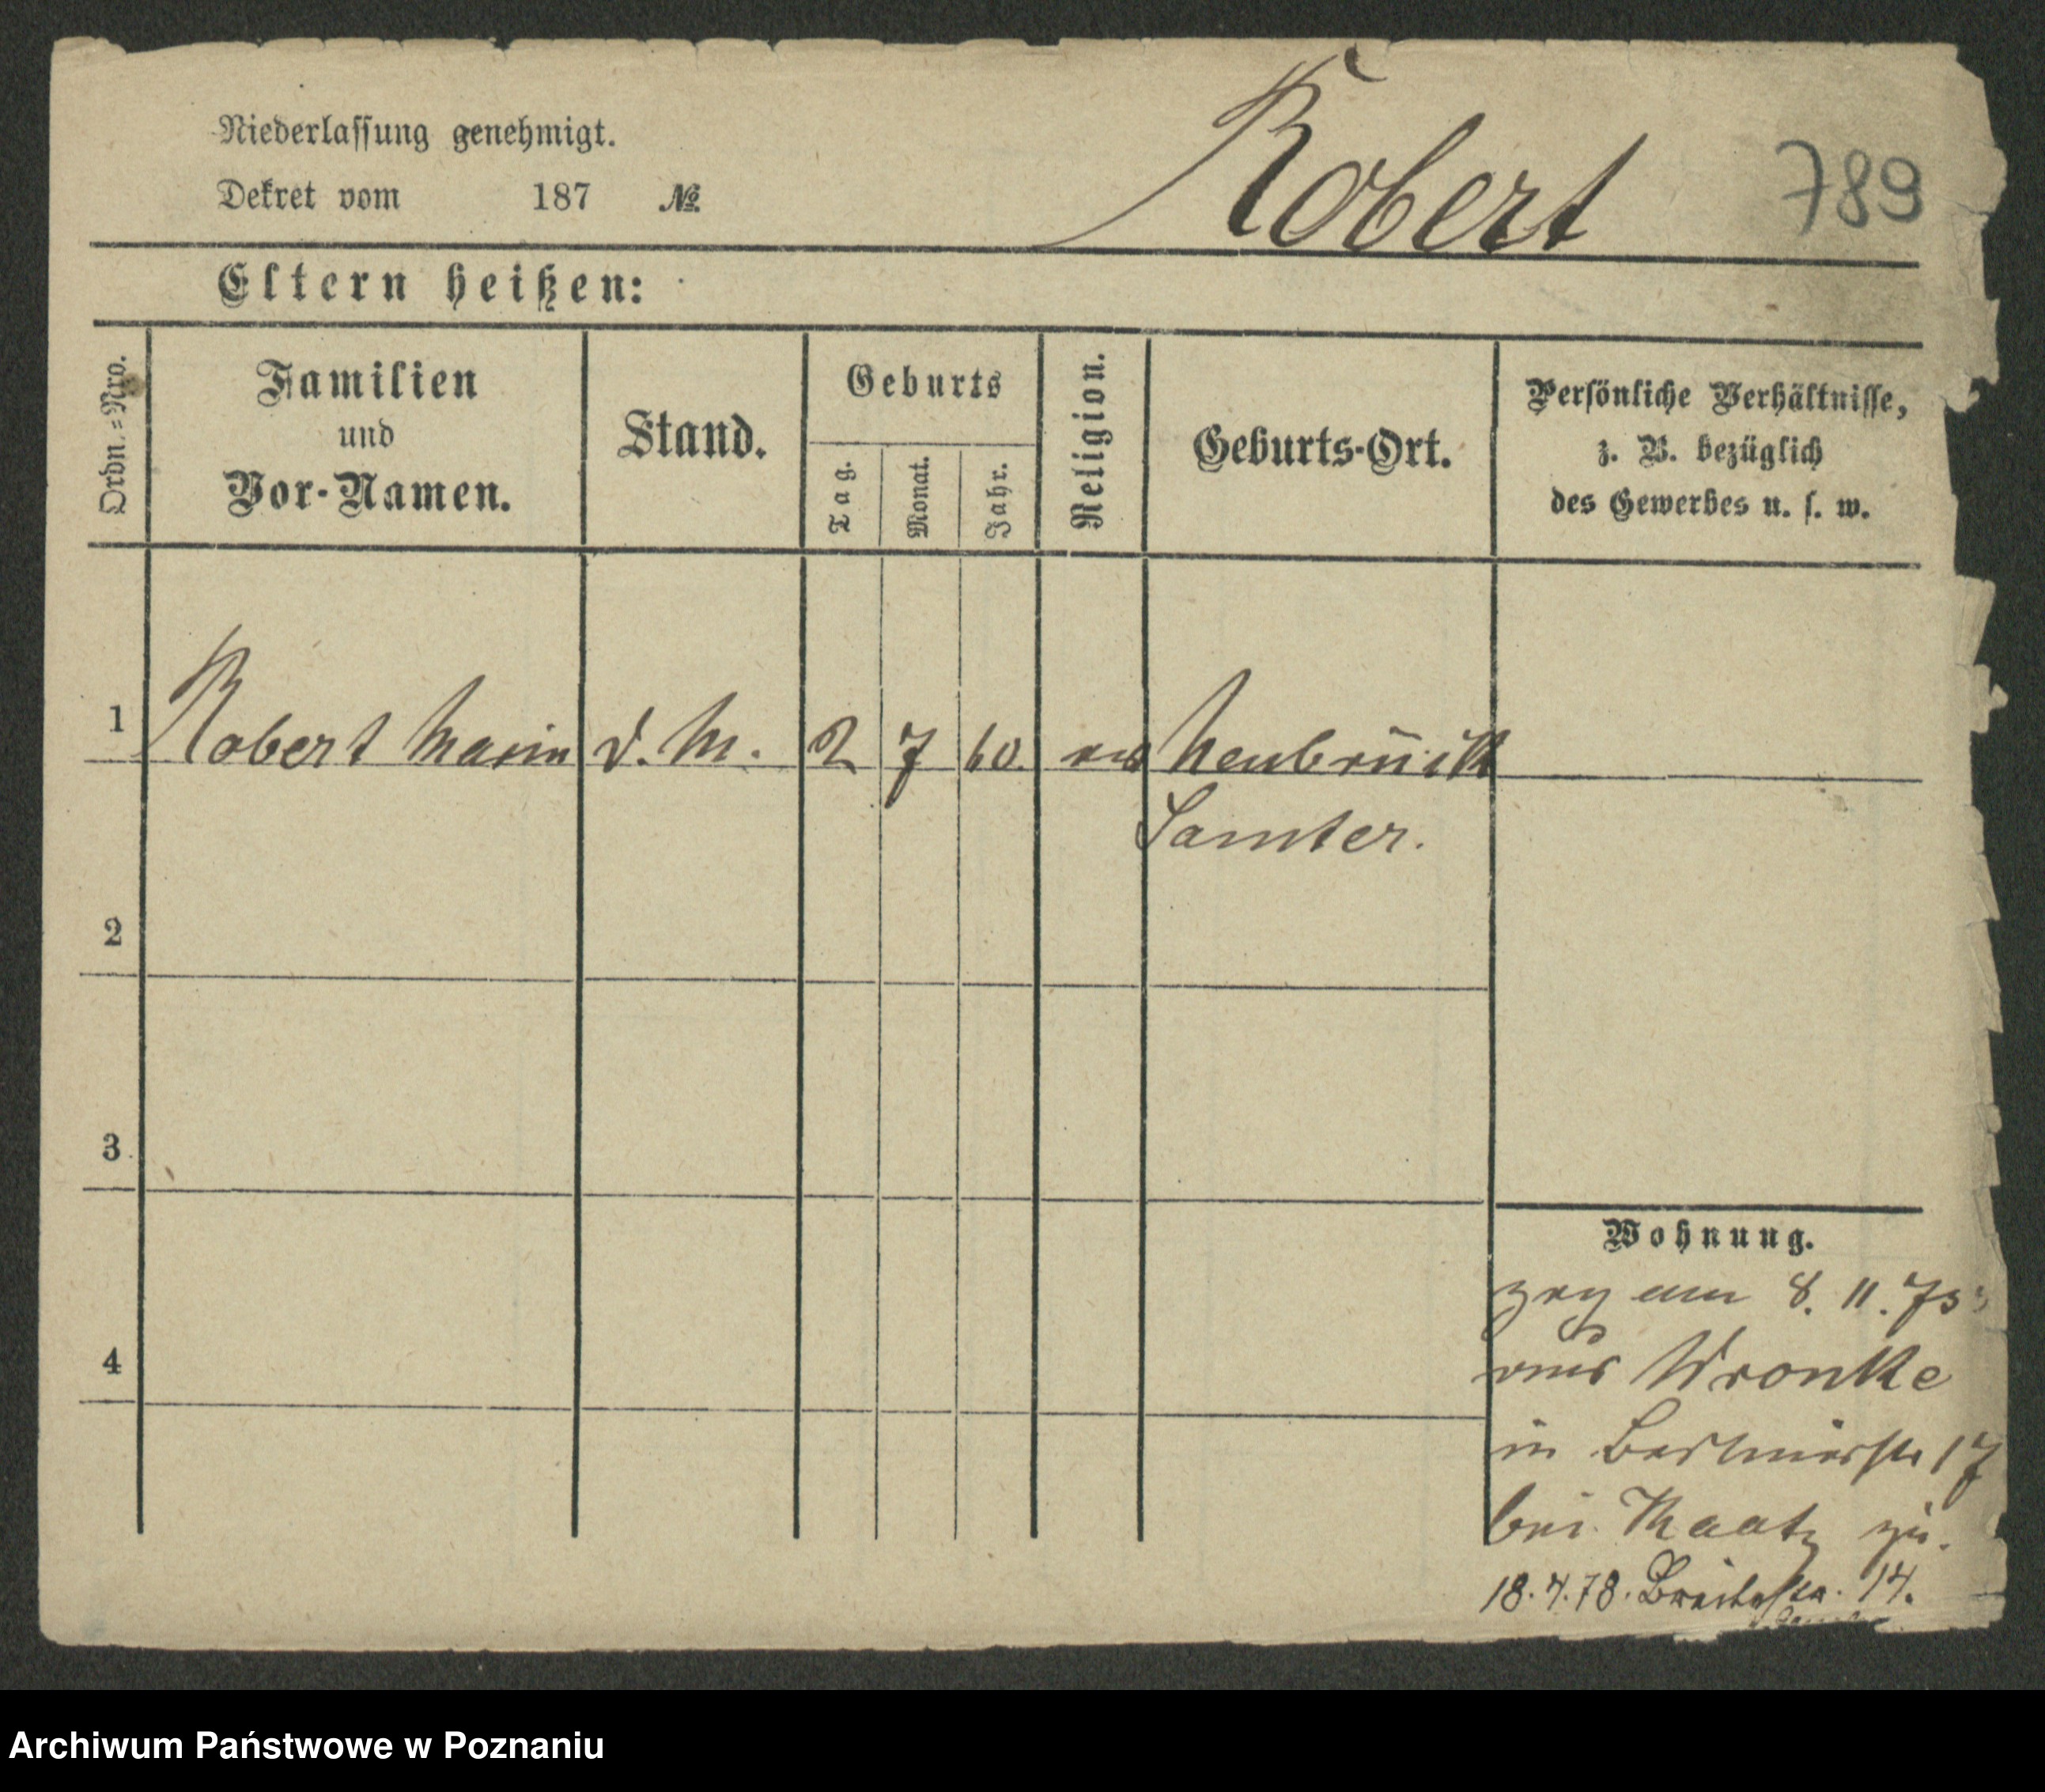 Niederlassung genehmigt.
Dekret vom 187 №
Robert
789
Eltern heißen:
Ordn.=Nro.
Familien
und
Vor-Namen.
Stand.
Geburts
Tag.
Monat.
Jahr.
Religion.
Geburts-Ort.
Persönliche Verhältnisse,
z. B. bezüglich
des Gewerbes u. s. w.
1 Robert Marin d. M. 2 7 60 Neubrück
Samter.
2
3
4
Wohnung.
zog am 8. 11. 75
aus Wronke
in Berlinerstr 17
bei Maatz zu.
18.4.78. Breitestr. 14.
Archiwum Państwowe w Poznaniu